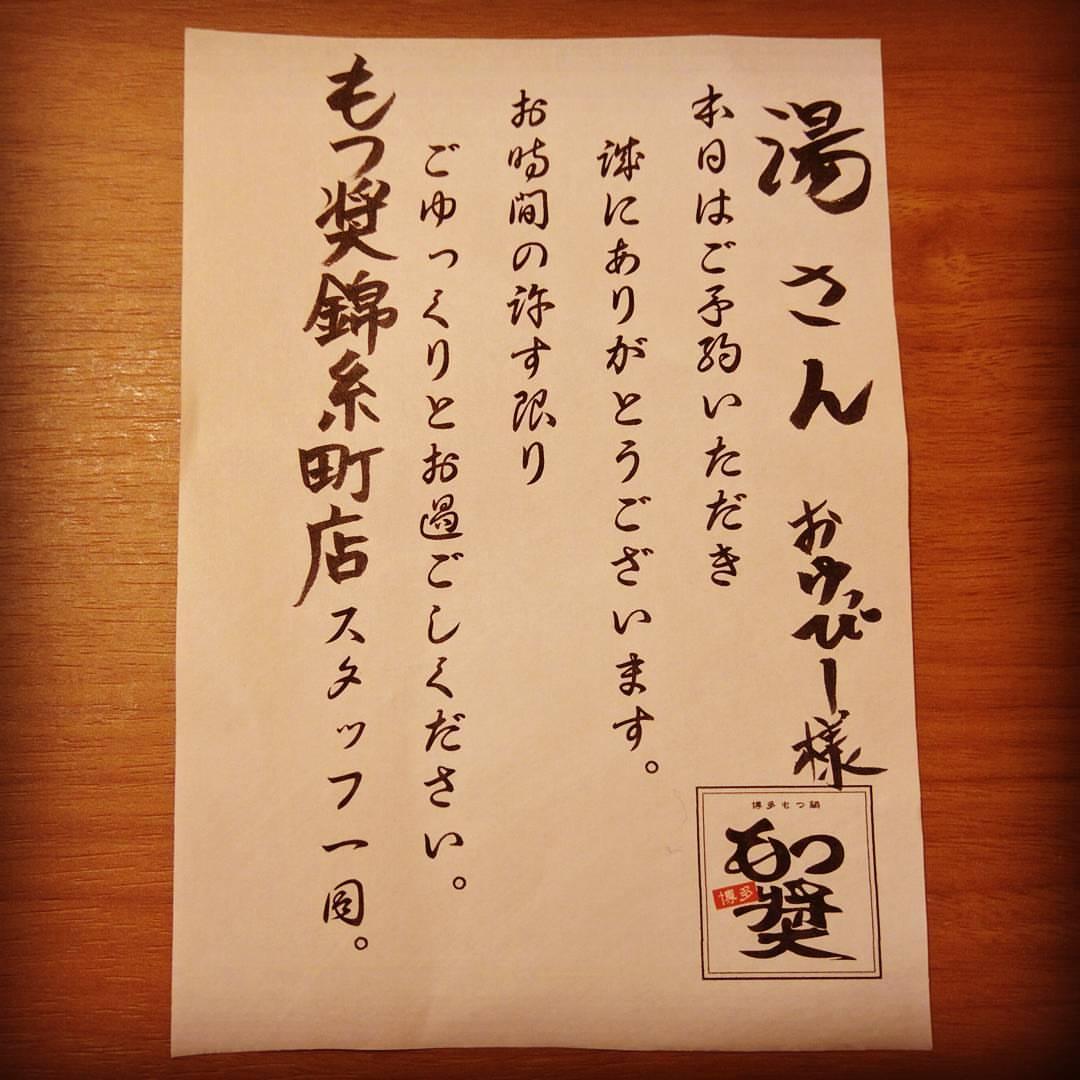 湯さん おゆぴー様
本日はご予約いただき
誠にありがとうございます。
お時間の許す限り
ごゆっくりとお過ごしください。
もつ奨錦糸町店スタッフ一同。
博多もつ鍋
もつ
奨
博多